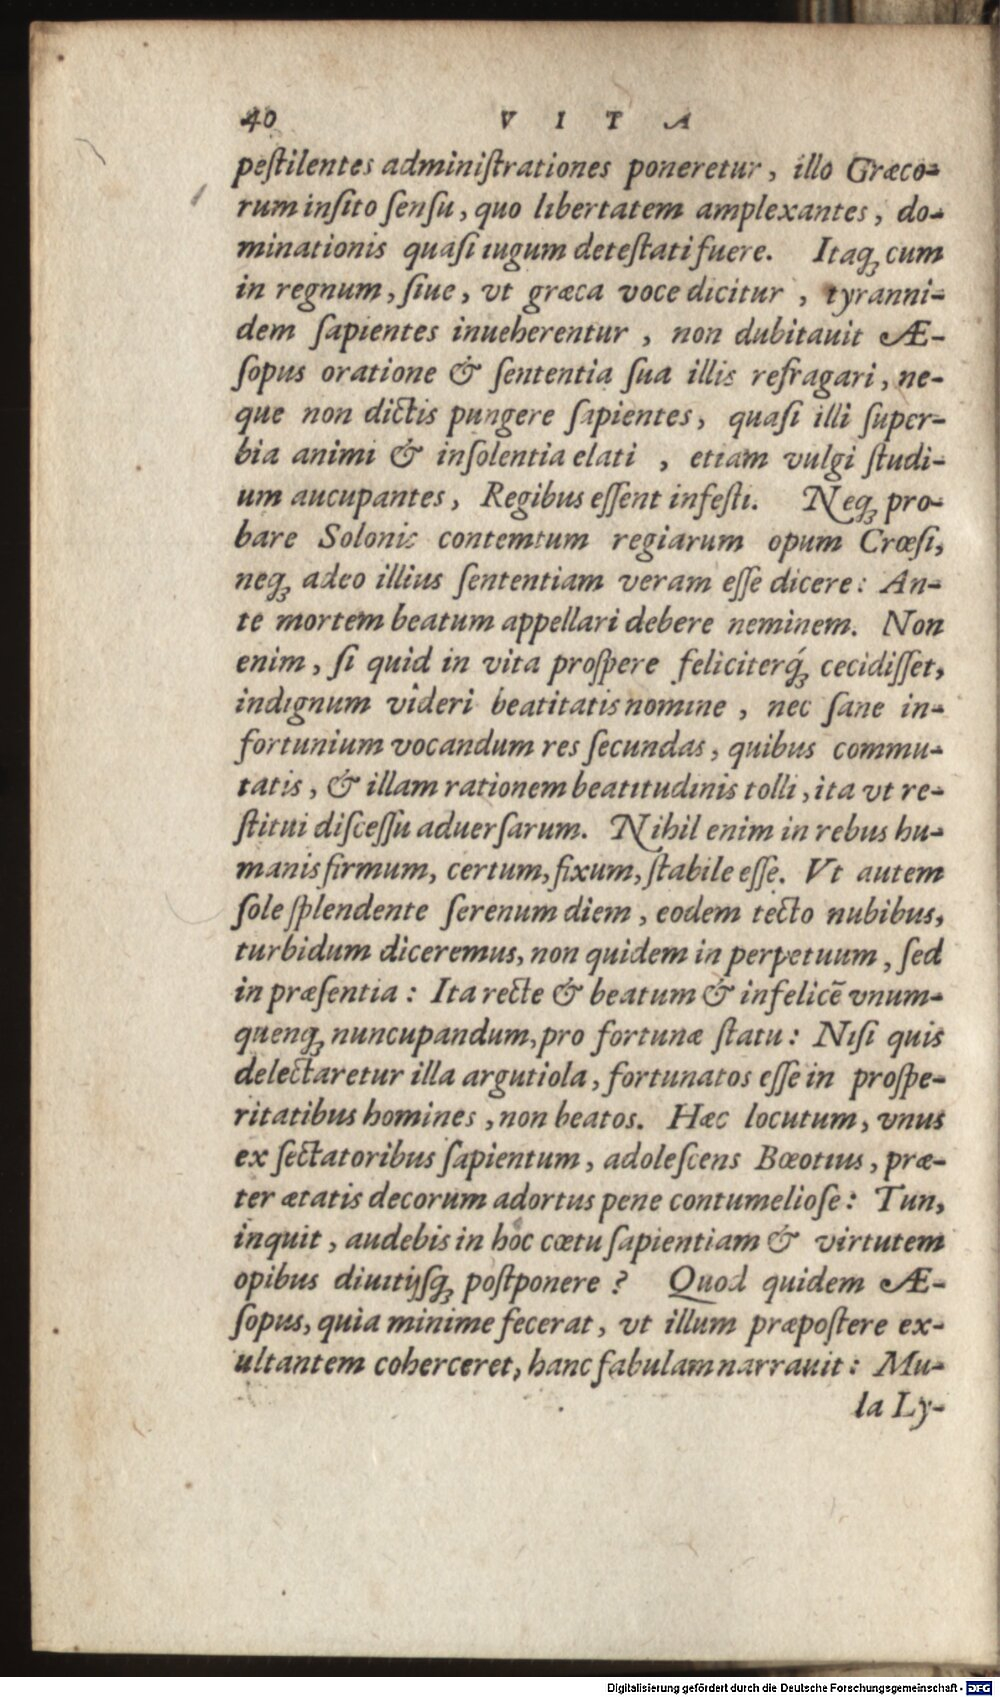 40 VITA
peſtilentes adminiſtrationes poneretur, illo Græco-
rum inſito ſenſu, quo libertatem amplexantes, do-
minationis quaſi iugum deteſtati fuere. Itaq; cum
in regnum, ſiue, vt græca voce dicitur, tyranni-
dem ſapientes inueherentur, non dubitauit Æ-
ſopus oratione & ſententia ſua illis refragari, ne-
que non dictis pungere ſapientes, quaſi illi ſuper-
bia animi & inſolentia elati, etiam vulgi ſtudi-
um aucupantes, Regibus eſſent infeſti. Neq; pro-
bare Solonis contemtum regiarum opum Crœſi,
neq; adeo illius ſententiam veram eſſe dicere: An-
te mortem beatum appellari debere neminem. Non
enim, ſi quid in vita proſpere feliciterq́; cecidiſſet,
indignum videri beatitatis nomine, nec ſane in-
fortunium vocandum res ſecundas, quibus commu-
tatis, & illam rationem beatitudinis tolli, ita vt re-
ſtitui diſceſſu aduerſarum. Nihil enim in rebus hu-
manis firmum, certum, fixum, ſtabile eſſe. Vt autem
ſole ſplendente ſerenum diem, eodem tecto nubibus,
turbidum diceremus, non quidem in perpetuum, ſed
in præſentia: Ita recte & beatum & infelicē vnum-
quenq; nuncupandum, pro fortunæ ſtatu: Niſi quis
delectaretur illa argutiola, fortunatos eſſe in proſpe-
ritatibus homines, non beatos. Hæc locutum, vnus
ex ſectatoribus ſapientum, adoleſcens Bœotius, præ-
ter ætatis decorum adortus pene contumelioſe: Tun,
inquit, audebis in hoc cœtu ſapientiam & virtutem
opibus diuitijsq; poſtponere? Quod quidem Æ-
ſopus, quia minime fecerat, vt illum præpoſtere ex-
ultantem coherceret, hanc fabulam narrauit: Mu-
la Ly-
Digitalisierung gefördert durch die Deutsche Forschungsgemeinschaft - DFG